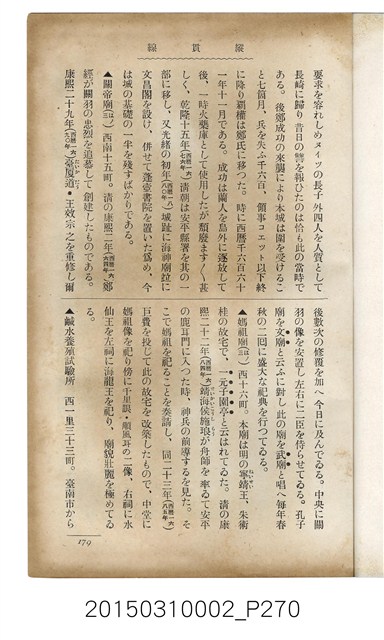 線貫縱
要求を容れしめメイツの長子外四人を質として
長崎に歸り昔日の讐を報ひたのは恰も此の當時で
ある。後鄭成功の來襲により本城は圍を受けるこ
と七箇月、兵を失ふ千六百、領事コエット以下終
に降り覇權は鄭氏に移つた。時に西曆千六百六十
一年十一月である。成功は蘭人を島外に逐放して
後、一時火藥庫として使用したが頽廢ます〳〵甚
しく、乾隆十五年清朝は安平縣署を其の一
部に移し、又光緒の初年城趾に海神廟並に
文昌閣を設け、併せて蓬壺書院を置いた爲め、今
は城の基礎の一半を殘すばかりである。
▲關帝廟 西南十五町。清の康熙二年鄭
經が關羽の忠烈を追慕して創建したものである。
康熙二十九年臺厦道・王效宗之を重修し爾
後數次の修覆を加へ今日に及んでゐる。中央に關
羽の像を安置し左右に二臣を侍らせてゐる。孔子
廟を文廟と云ふに對し此の廟を武廟と唱へ每年春
秋の二回に盛大な祀典を行つてゐる。
▲媽祖廟 西十六町。本廟は明の寧靖王、朱術
桂の故宅で、一元子園亭と云はれてゐた。清の康
熙二十二年靖海侯施琅が舟師を率ゐて安平
の鹿耳門に入つた時、神兵の前導するを見た。そ
こで媽祖を祀ることを奏請し、同二十三年
巨費を投じて此の故宅を改築したもので、中堂に
媽祖像を祀り傍に千里眼・順風耳の二像、右祠に水
仙王を左祠に海龍王を祀り、廟貌壯麗を極めてゐ
る。
▲鹹水養殖試驗所 西一里三十三町。臺南市から
179
20150310002_P270